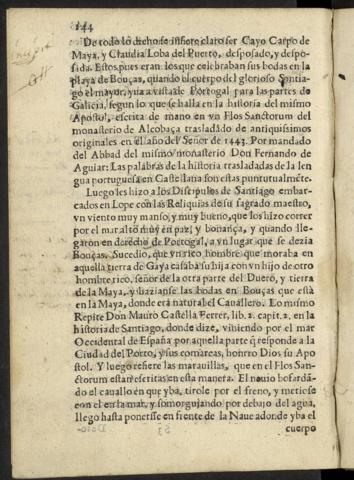 144
De todo lo dicho se infiere claro ser Cayo Carpo de
Maya, y Claudia Loba del Puerto, desposado, y despo-
sada. Estos pues eran los que celebraban sus bodas en la
playa de Bouças, quando el cuerpo del glorioso Santia-
go el mayor, yua a vista de Portugal para las partes de
Galicia, segun lo que se halla en la historia del mismo
Apostol, escrita de mano en vn Flos Sanctorum del
monasterio de Alcobaça trasladado de antiquissimos
originales en el año del Señor de 1443. Por mandado
del Abbad del mismo monasterio Don Fernando de
Aguiar: Las palabras de la historia trasladadas de la len
gua portuguesa en Castellana son estas puntualmẽte.
Luego les hizo a los Discipulos de Santiago embar-
cados en Lope con las Reliquias de su sagrado maestro,
vn viento muy manso, y muy bueno, que los hizo correr
por el mar alto muy en paz, y bonança, y quando lle-
garon en derecho de Portogal, a vn lugar que se dezia
Bouças. Sucedio, que vn rico hombre que moraba en
aquella tierra de Gaya casaba su hija con vn hijo de otro
hombre rico, señor de la otra parte del Duero, y tierra
de la Maya, y hazianse las bodas en Bouças que està
en la Maya, donde era natural el Cauallero. Lo mismo
Repite Don Mauro Castella Ferrer, lib. 2. capit. 2. en la
historia de Santiago, donde dize, viniendo por el mar
Occidental de España por aquella parte q̃ responde a la
Ciudad del Porto, y sus comarcas, honrro Dios su Apo
stol. Y luego refiere las marauillas, que en el Flos San-
ctorum estan escritas en esta manera. El nouio bofardã-
do el cauallo en que yba, tirole por el freno, y metiese
con el en la mar, y somorgujando por debajo del agua,
llegò hasta ponersse en frente de la Naue adonde yba el
cuerpo